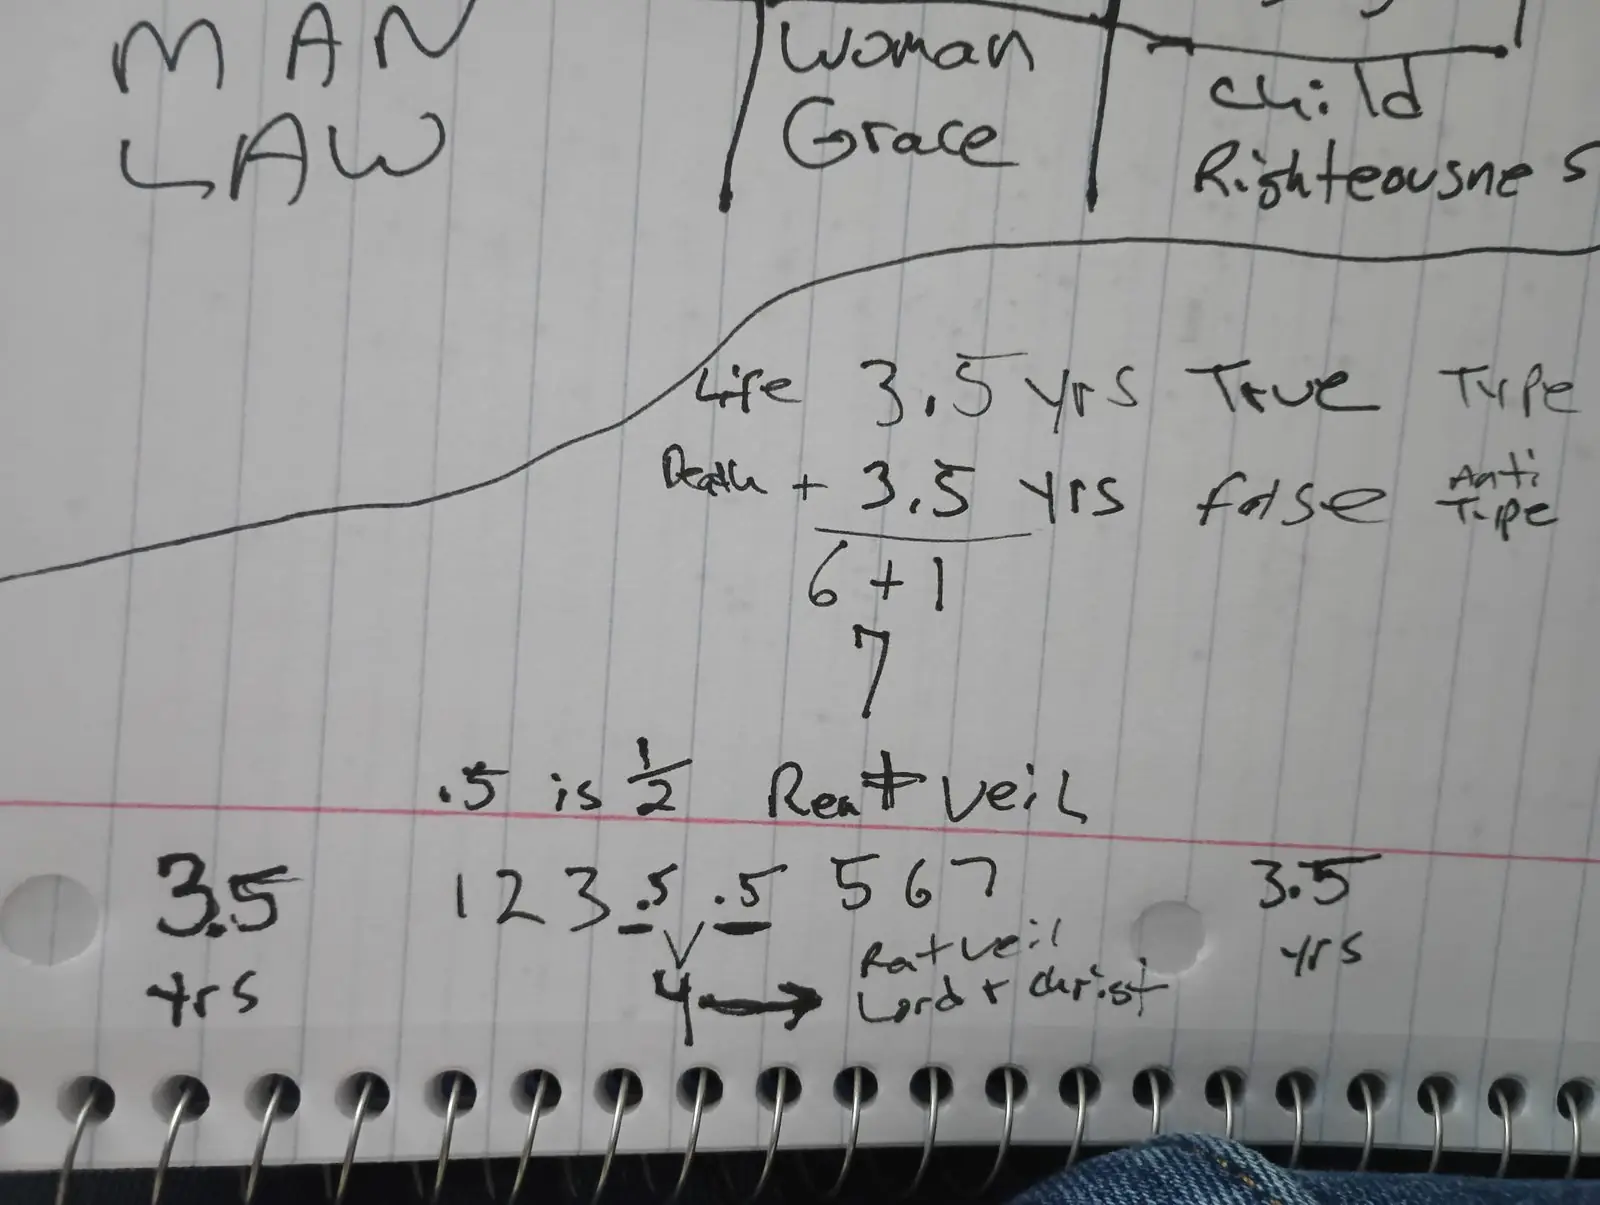 MAN
LAW
Woman
Grace
child
Righteousnes
Life 3.5 yrs True Type
Death + 3.5 yrs false Anti Type
6 + 1
7
.5 is 1/2 Rent veil
3.5 yrs
1 2 3 .5 .5 5 6 7
4 → Rent veil
Lord + Christ
3.5 yrs